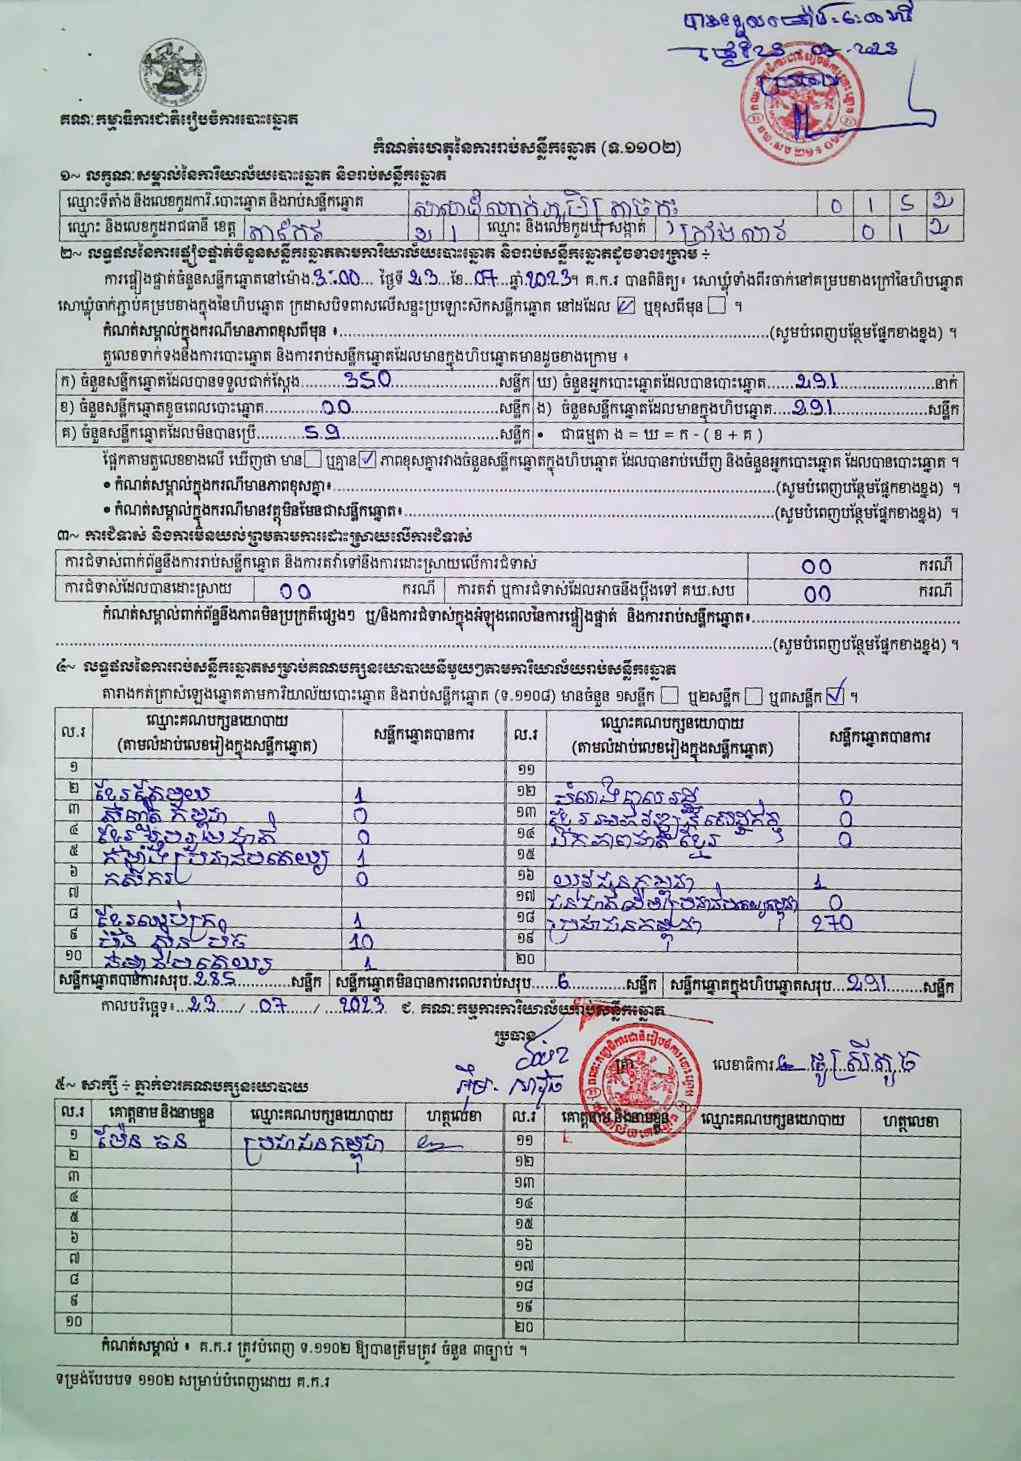 គណៈកម្មាធិការជាតិរៀបចំការបោះឆ្នោត
កំណត់ហេតុនៃការរាប់សន្លឹកឆ្នោត (ទ.១១០២)
១~ លក្ខណៈសម្គាល់នៃការិយាល័យបោះឆ្នោត និងរាប់សន្លឹកឆ្នោត
ឈ្មោះទីតាំង និងលេខកូដការិ.បោះឆ្នោត និងរាប់សន្លឹកឆ្នោត 0 1 5 2
ឈ្មោះ និងលេខកូដរាជធានី ខេត្ត តាកែវ 2 1 ឈ្មោះ និងលេខកូដឃុំ សង្កាត់ ក្រាំងលាវ 0 1 2
២~ លទ្ធផលនៃការផ្ទៀងផ្ទាត់ចំនួនសន្លឹកឆ្នោតតាមការិយាល័យបោះឆ្នោត និងរាប់សន្លឹកឆ្នោតដូចខាងក្រោម ÷
ការផ្ទៀងផ្ទាត់ចំនួនសន្លឹកឆ្នោតនៅម៉ោង 3:00 ថ្ងៃទី 23 ខែ 07 ឆ្នាំ 2023។ គ.ក.រ បានពិនិត្យ៖ សោឃ្លុំទាំងពីរចាក់នៅគម្របខាងក្រៅនៃហិបឆ្នោត
សោឃ្លុំចាក់ភ្ជាប់គម្របខាងក្នុងនៃហិបឆ្នោត ក្រដាសបិទពាសលើសន្ទះប្រឡោះសិកសន្លឹកឆ្នោត នៅដដែល ☑ ឬខុសពីមុន ☐ ។
កំណត់សម្គាល់ក្នុងករណីមានភាពខុសពីមុន ៖ (សូមបំពេញបន្ថែមផ្នែកខាងខ្នង) ។
តួលេខទាក់ទងនឹងការបោះឆ្នោត និងការរាប់សន្លឹកឆ្នោតដែលមានក្នុងហិបឆ្នោតមានដូចខាងក្រោម ៖
ក) ចំនួនសន្លឹកឆ្នោតដែលបានទទួលជាក់ស្តែង 350 សន្លឹក ឃ) ចំនួនអ្នកបោះឆ្នោតដែលបានបោះឆ្នោត 291 នាក់
ខ) ចំនួនសន្លឹកឆ្នោតខូចពេលបោះឆ្នោត 00 សន្លឹក ង) ចំនួនសន្លឹកឆ្នោតដែលមានក្នុងហិបឆ្នោត 291 សន្លឹក
គ) ចំនួនសន្លឹកឆ្នោតដែលមិនបានប្រើ 59 សន្លឹក • ជាធម្មតា ង = ឃ = ក - ( ខ + គ )
ផ្អែកតាមតួលេខខាងលើ ឃើញថា មាន ☐ ឬគ្មាន ☑ ភាពខុសគ្នារវាងចំនួនសន្លឹកឆ្នោតក្នុងហិបឆ្នោត ដែលបានរាប់ឃើញ និងចំនួនអ្នកបោះឆ្នោត ដែលបានបោះឆ្នោត ។
• កំណត់សម្គាល់ក្នុងករណីមានភាពខុសគ្នា៖ (សូមបំពេញបន្ថែមផ្នែកខាងខ្នង) ។
• កំណត់សម្គាល់ក្នុងករណីមានវត្ថុមិនមែនជាសន្លឹកឆ្នោត៖ (សូមបំពេញបន្ថែមផ្នែកខាងខ្នង) ។
៣~ ការជំទាស់ និងការមិនយល់ព្រមតាមការដោះស្រាយលើការជំទាស់
ការជំទាស់ពាក់ព័ន្ធនឹងការរាប់សន្លឹកឆ្នោត និងការតវ៉ាទៅនឹងការដោះស្រាយលើការជំទាស់ 00 ករណី
ការជំទាស់ដែលបានដោះស្រាយ 00 ករណី ការតវ៉ា ឬការជំទាស់ដែលអាចនឹងប្តឹងទៅ គឃ.សប 00 ករណី
កំណត់សម្គាល់ពាក់ព័ន្ធនឹងភាពមិនប្រក្រតីផ្សេងៗ ឬ/និងការជំទាស់ក្នុងអំឡុងពេលនៃការផ្ទៀងផ្ទាត់ និងការរាប់សន្លឹកឆ្នោត៖
(សូមបំពេញបន្ថែមផ្នែកខាងខ្នង) ។
៤~ លទ្ធផលនៃការរាប់សន្លឹកឆ្នោតសម្រាប់គណបក្សនយោបាយនីមួយៗតាមការិយាល័យរាប់សន្លឹកឆ្នោត
តារាងកត់ត្រាសំឡេងឆ្នោតតាមការិយាល័យបោះឆ្នោត និងរាប់សន្លឹកឆ្នោត (ទ.១១០៨) មានចំនួន ១សន្លឹក ☐ ឬ២សន្លឹក ☐ ឬ៣សន្លឹក ☑ ។
ល.រ ឈ្មោះគណបក្សនយោបាយ (តាមលំដាប់លេខរៀងក្នុងសន្លឹកឆ្នោត) សន្លឹកឆ្នោតបានការ ល.រ ឈ្មោះគណបក្សនយោបាយ (តាមលំដាប់លេខរៀងក្នុងសន្លឹកឆ្នោត) សន្លឹកឆ្នោតបានការ
១ ១១
២ ខ្មែរតែមួយ 1 ១២ សំបុកឃ្មុំ 0
៣ 0 ១៣ ខ្មែរអភិវឌ្ឍន៍សេដ្ឋកិច្ច 0
៤ ខ្មែររួបរួមជាតិ 0 ១៤ ឯកភាពជាតិខ្មែរ 0
៥ កម្លាំងប្រជាធិបតេយ្យ 1 ១៥
៦ កសិករ 0 ១៦ យុវជនកម្ពុជា 1
៧ ១៧ ជនជាតិដើមប្រជាធិបតេយ្យកម្ពុជា 0
៨ ខ្មែរឈប់ក្រ 1 ១៨ ប្រជាជនកម្ពុជា 270
៩ ហ៊្វុនស៊ិនប៉ិច 10 ១៩
១០ 1 ២០
សន្លឹកឆ្នោតបានការសរុប 285 សន្លឹក សន្លឹកឆ្នោតមិនបានការពេលរាប់សរុប 6 សន្លឹក សន្លឹកឆ្នោតក្នុងហិបឆ្នោតសរុប 291 សន្លឹក
កាលបរិច្ឆេទ៖ 23 / 07 / 2023 ៩. គណៈកម្មការការិយាល័យរាប់សន្លឹកឆ្នោត
ប្រធាន
ត្រា លេខាធិការ
៥~ សាក្សី ÷ ភ្នាក់ងារគណបក្សនយោបាយ
ល.រ គោត្តនាម និងនាមខ្លួន ឈ្មោះគណបក្សនយោបាយ ហត្ថលេខា ល.រ គោត្តនាម និងនាមខ្លួន ឈ្មោះគណបក្សនយោបាយ ហត្ថលេខា
១ ម៉ែន ធន ប្រជាជនកម្ពុជា ១១
២ ១២
៣ ១៣
៤ ១៤
៥ ១៥
៦ ១៦
៧ ១៧
៨ ១៨
៩ ១៩
១០ ២០
កំណត់សម្គាល់ ៖ គ.ក.រ ត្រូវបំពេញ ទ.១១០២ ឱ្យបានត្រឹមត្រូវ ចំនួន ៣ច្បាប់ ។
ទម្រង់បែបបទ ១១០២ សម្រាប់បំពេញដោយ គ.ក.រ